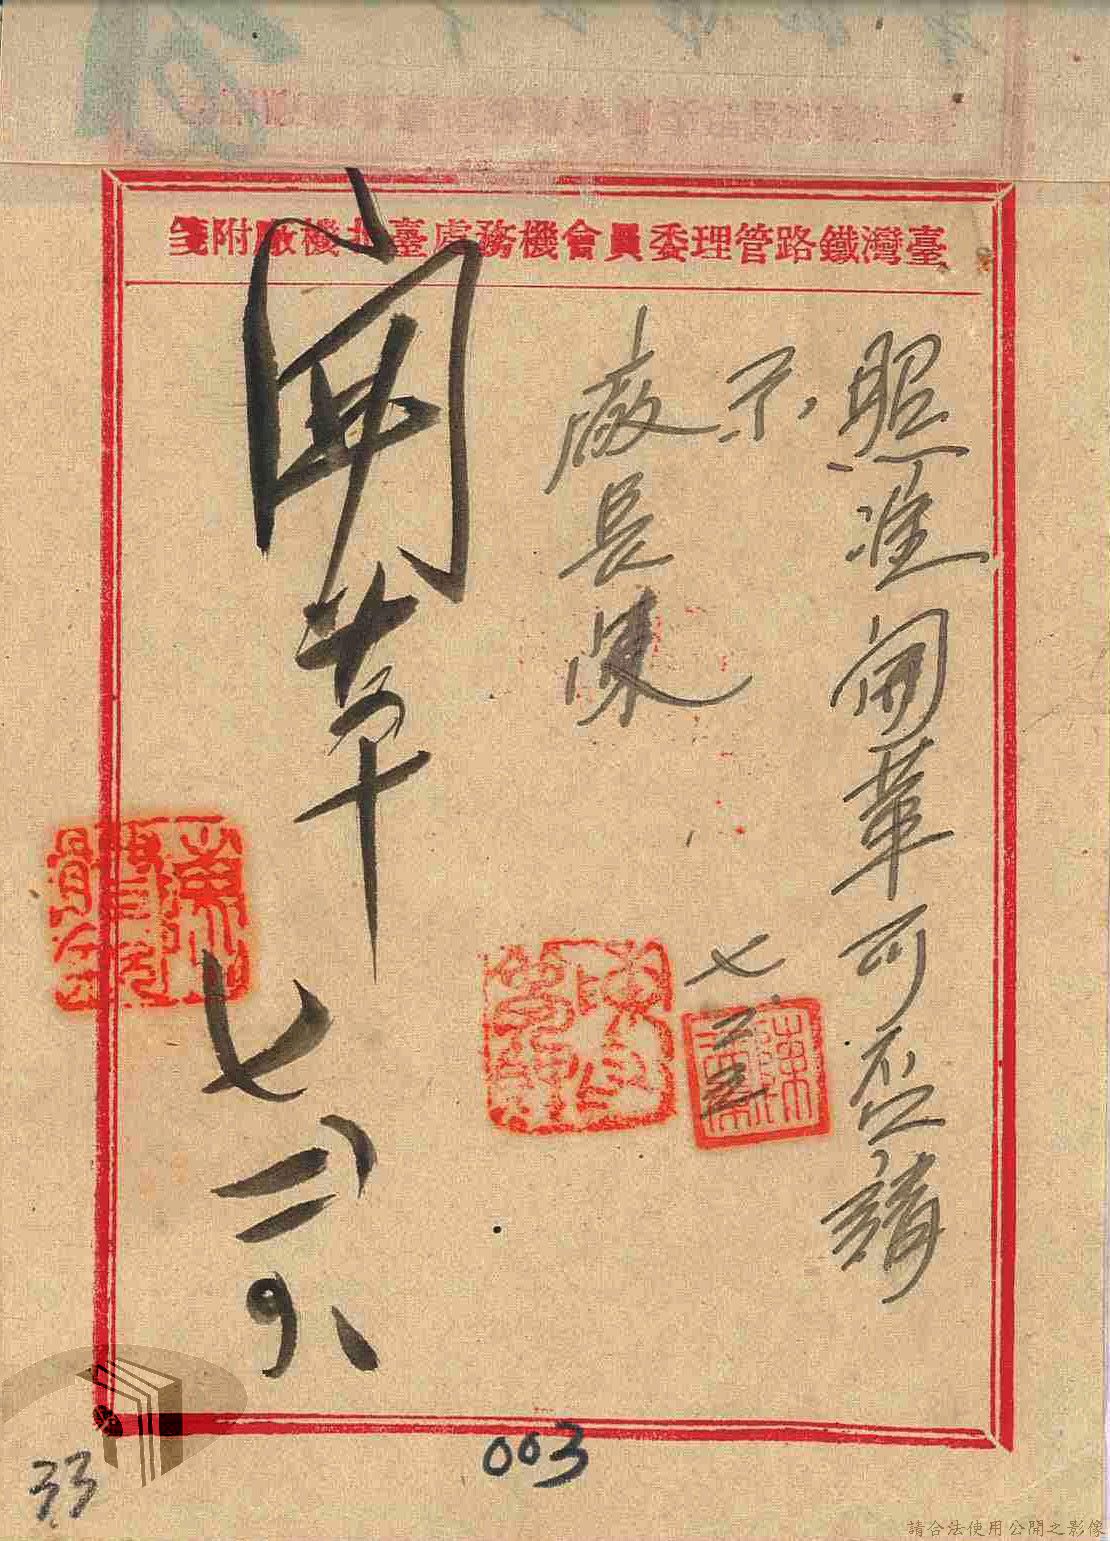 臺灣鐵路管理委員會機務處臺北機廠附箋
照准開革可否請
示
廠長陳
七、二三
開革
七二八
003
33
請合法使用公開之影像